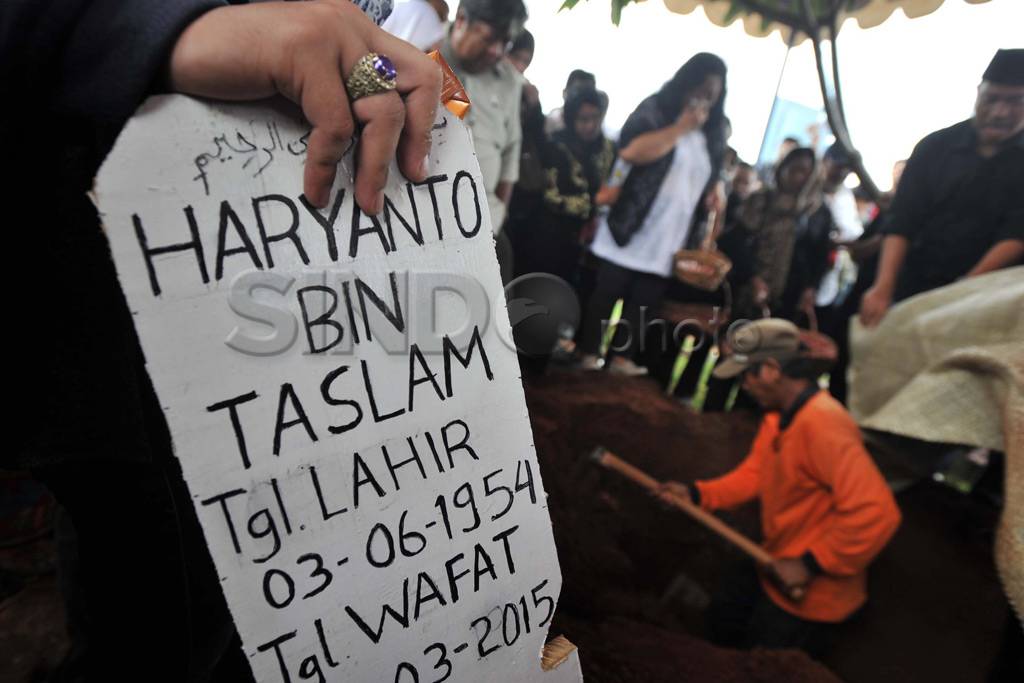 HARYANTO
BIN
TASLAM
Tgl. LAHIR
03-06-1954
Tgl WAFAT
03-2015
SINDO photo